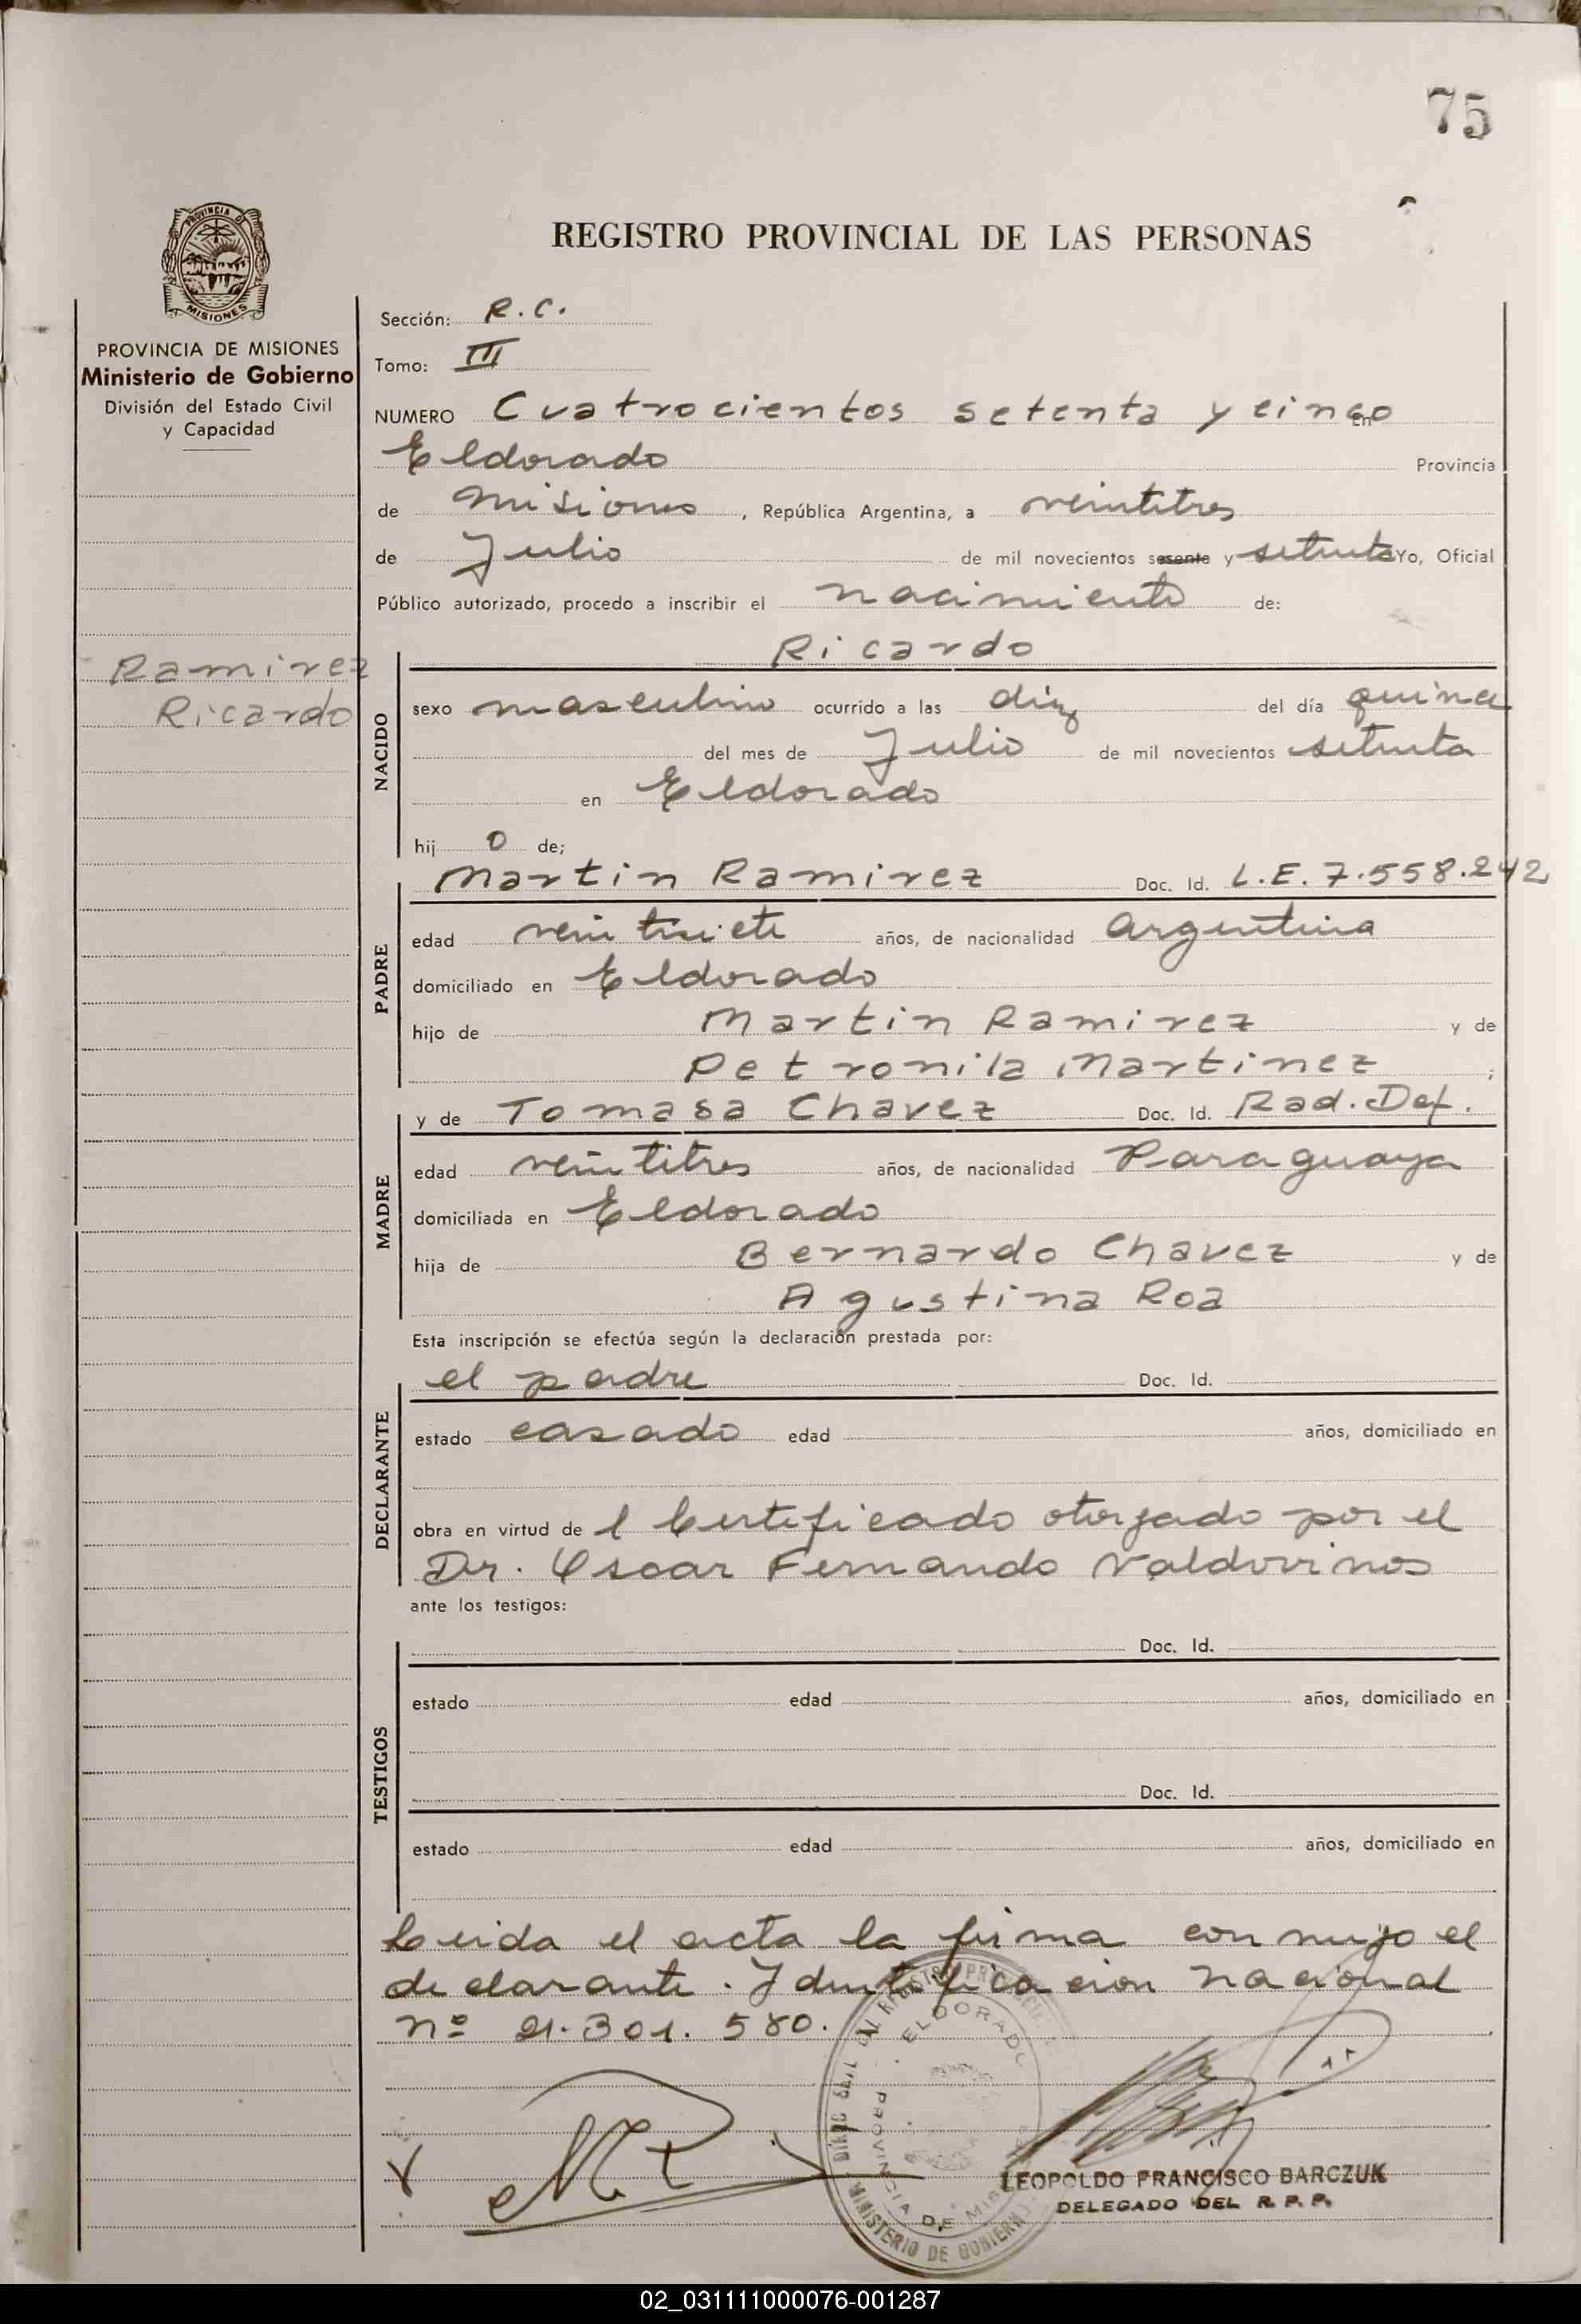 75
PROVINCIA DE
MISIONES
REGISTRO PROVINCIAL DE LAS PERSONAS
PROVINCIA DE MISIONES
Ministerio de Gobierno
División del Estado Civil
y Capacidad
Ramirez
Ricardo
Sección: R.C.
Tomo: III
NUMERO Cuatrocientos setenta y cinco en
Eldorado Provincia
de Misiones, República Argentina, a veintitres
de Julio de mil novecientos sesenta y setenta Yo, Oficial
Público autorizado, procedo a inscribir el nacimiento de:
Ricardo
NACIDO
sexo masculino ocurrido a las diez del día quince
del mes de Julio de mil novecientos setenta
en Eldorado
hij o de;
Martin Ramirez Doc. Id. L.E. 7.558.242
PADRE
edad veintisiete años, de nacionalidad Argentina
domiciliado en Eldorado
hijo de Martin Ramirez y de
Petronila Martinez ;
y de Tomasa Chavez Doc. Id. Rad. Def.
MADRE
edad veintitres años, de nacionalidad Paraguaya
domiciliada en Eldorado
hija de Bernardo Chavez y de
Agustina Roa
Esta inscripción se efectúa según la declaración prestada por:
el padre Doc. Id.
DECLARANTE
estado casado edad años, domiciliado en
obra en virtud de l Certificado otorgado por el
Dr. Oscar Fernando Valdovinos
ante los testigos:
Doc. Id.
TESTIGOS
estado edad años, domiciliado en
Doc. Id.
estado edad años, domiciliado en
Leida el acta la firma conmigo el
declarante. Identificacion nacional
nº 21.301.580.
ELDORADO
PROVINCIA DE MISIONES
MINISTERIO DE GOBIERNO
LEOPOLDO FRANCISCO BARCZUK
DELEGADO DEL R. P. P.
02_031111000076-001287